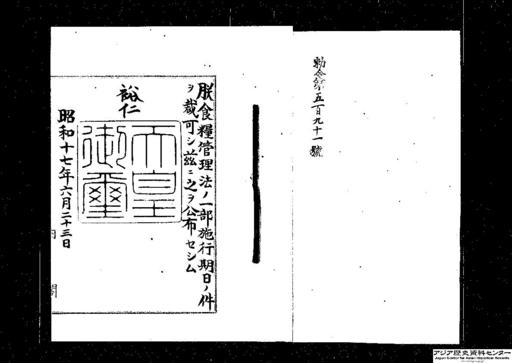 勅令第五百九十一號
朕食糧管理法ノ一部施行期日ノ件
ヲ裁可シ茲ニ之ヲ公布セシム
裕仁
天皇
御璽
昭和十七年六月二十三日
内閣
アジア歴史資料センター
Japan Center for Asian Historical Records